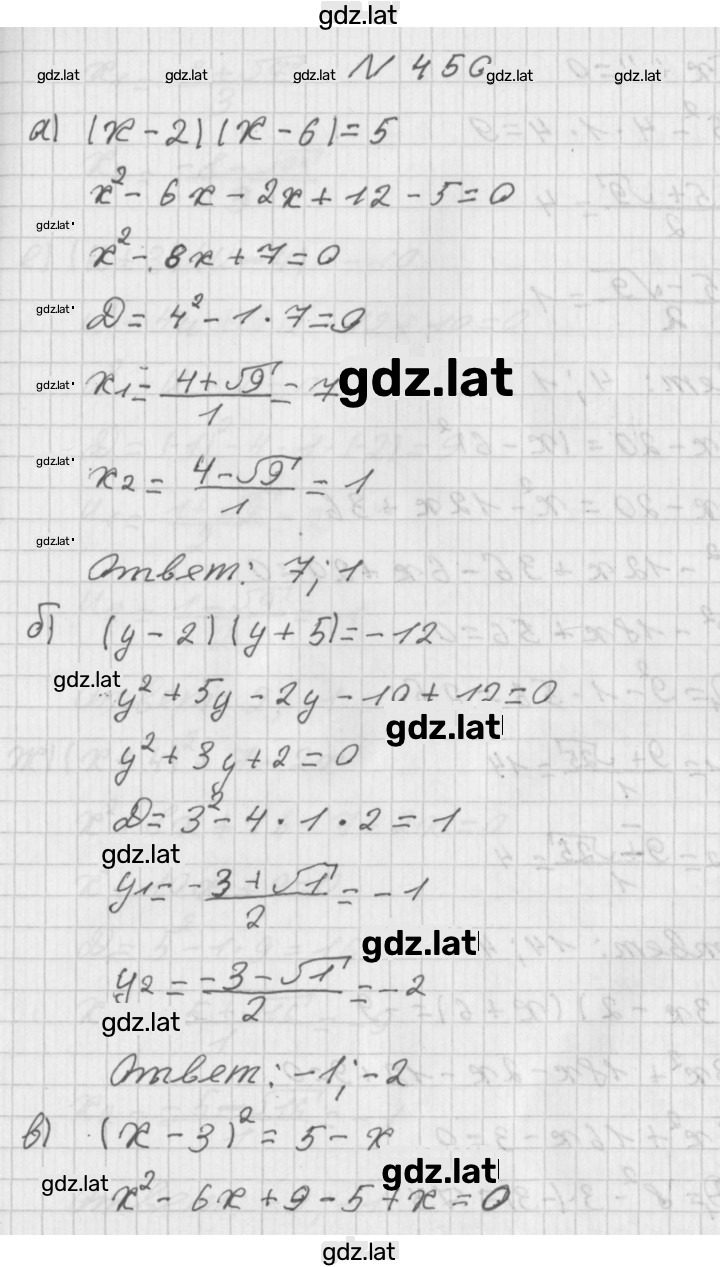 gdz.lat
gdz.lat gdz.lat gdz.lat N 456 gdz.lat gdz.lat
а) (x - 2)(x - 6) = 5
x² - 6x - 2x + 12 - 5 = 0
gdz.lat
x² - 8x + 7 = 0
gdz.lat D = 4² - 1 · 7 = 9
gdz.lat x₁ = (4 + √9)/1 = 7 gdz.lat
gdz.lat
x₂ = (4 - √9)/1 = 1
gdz.lat
Ответ: 7; 1
б) (y - 2)(y + 5) = -12
gdz.lat y² + 5y - 2y - 10 + 12 = 0
gdz.lat
y² + 3y + 2 = 0
D = 3² - 4 · 1 · 2 = 1
gdz.lat
y₁ = (-3 + √1)/2 = -1
gdz.lat
y₂ = (-3 - √1)/2 = -2
gdz.lat
Ответ: -1; -2
в) (x - 3)² = 5 - x
gdz.lat gdz.lat
x² - 6x + 9 - 5 + x = 0
gdz.lat